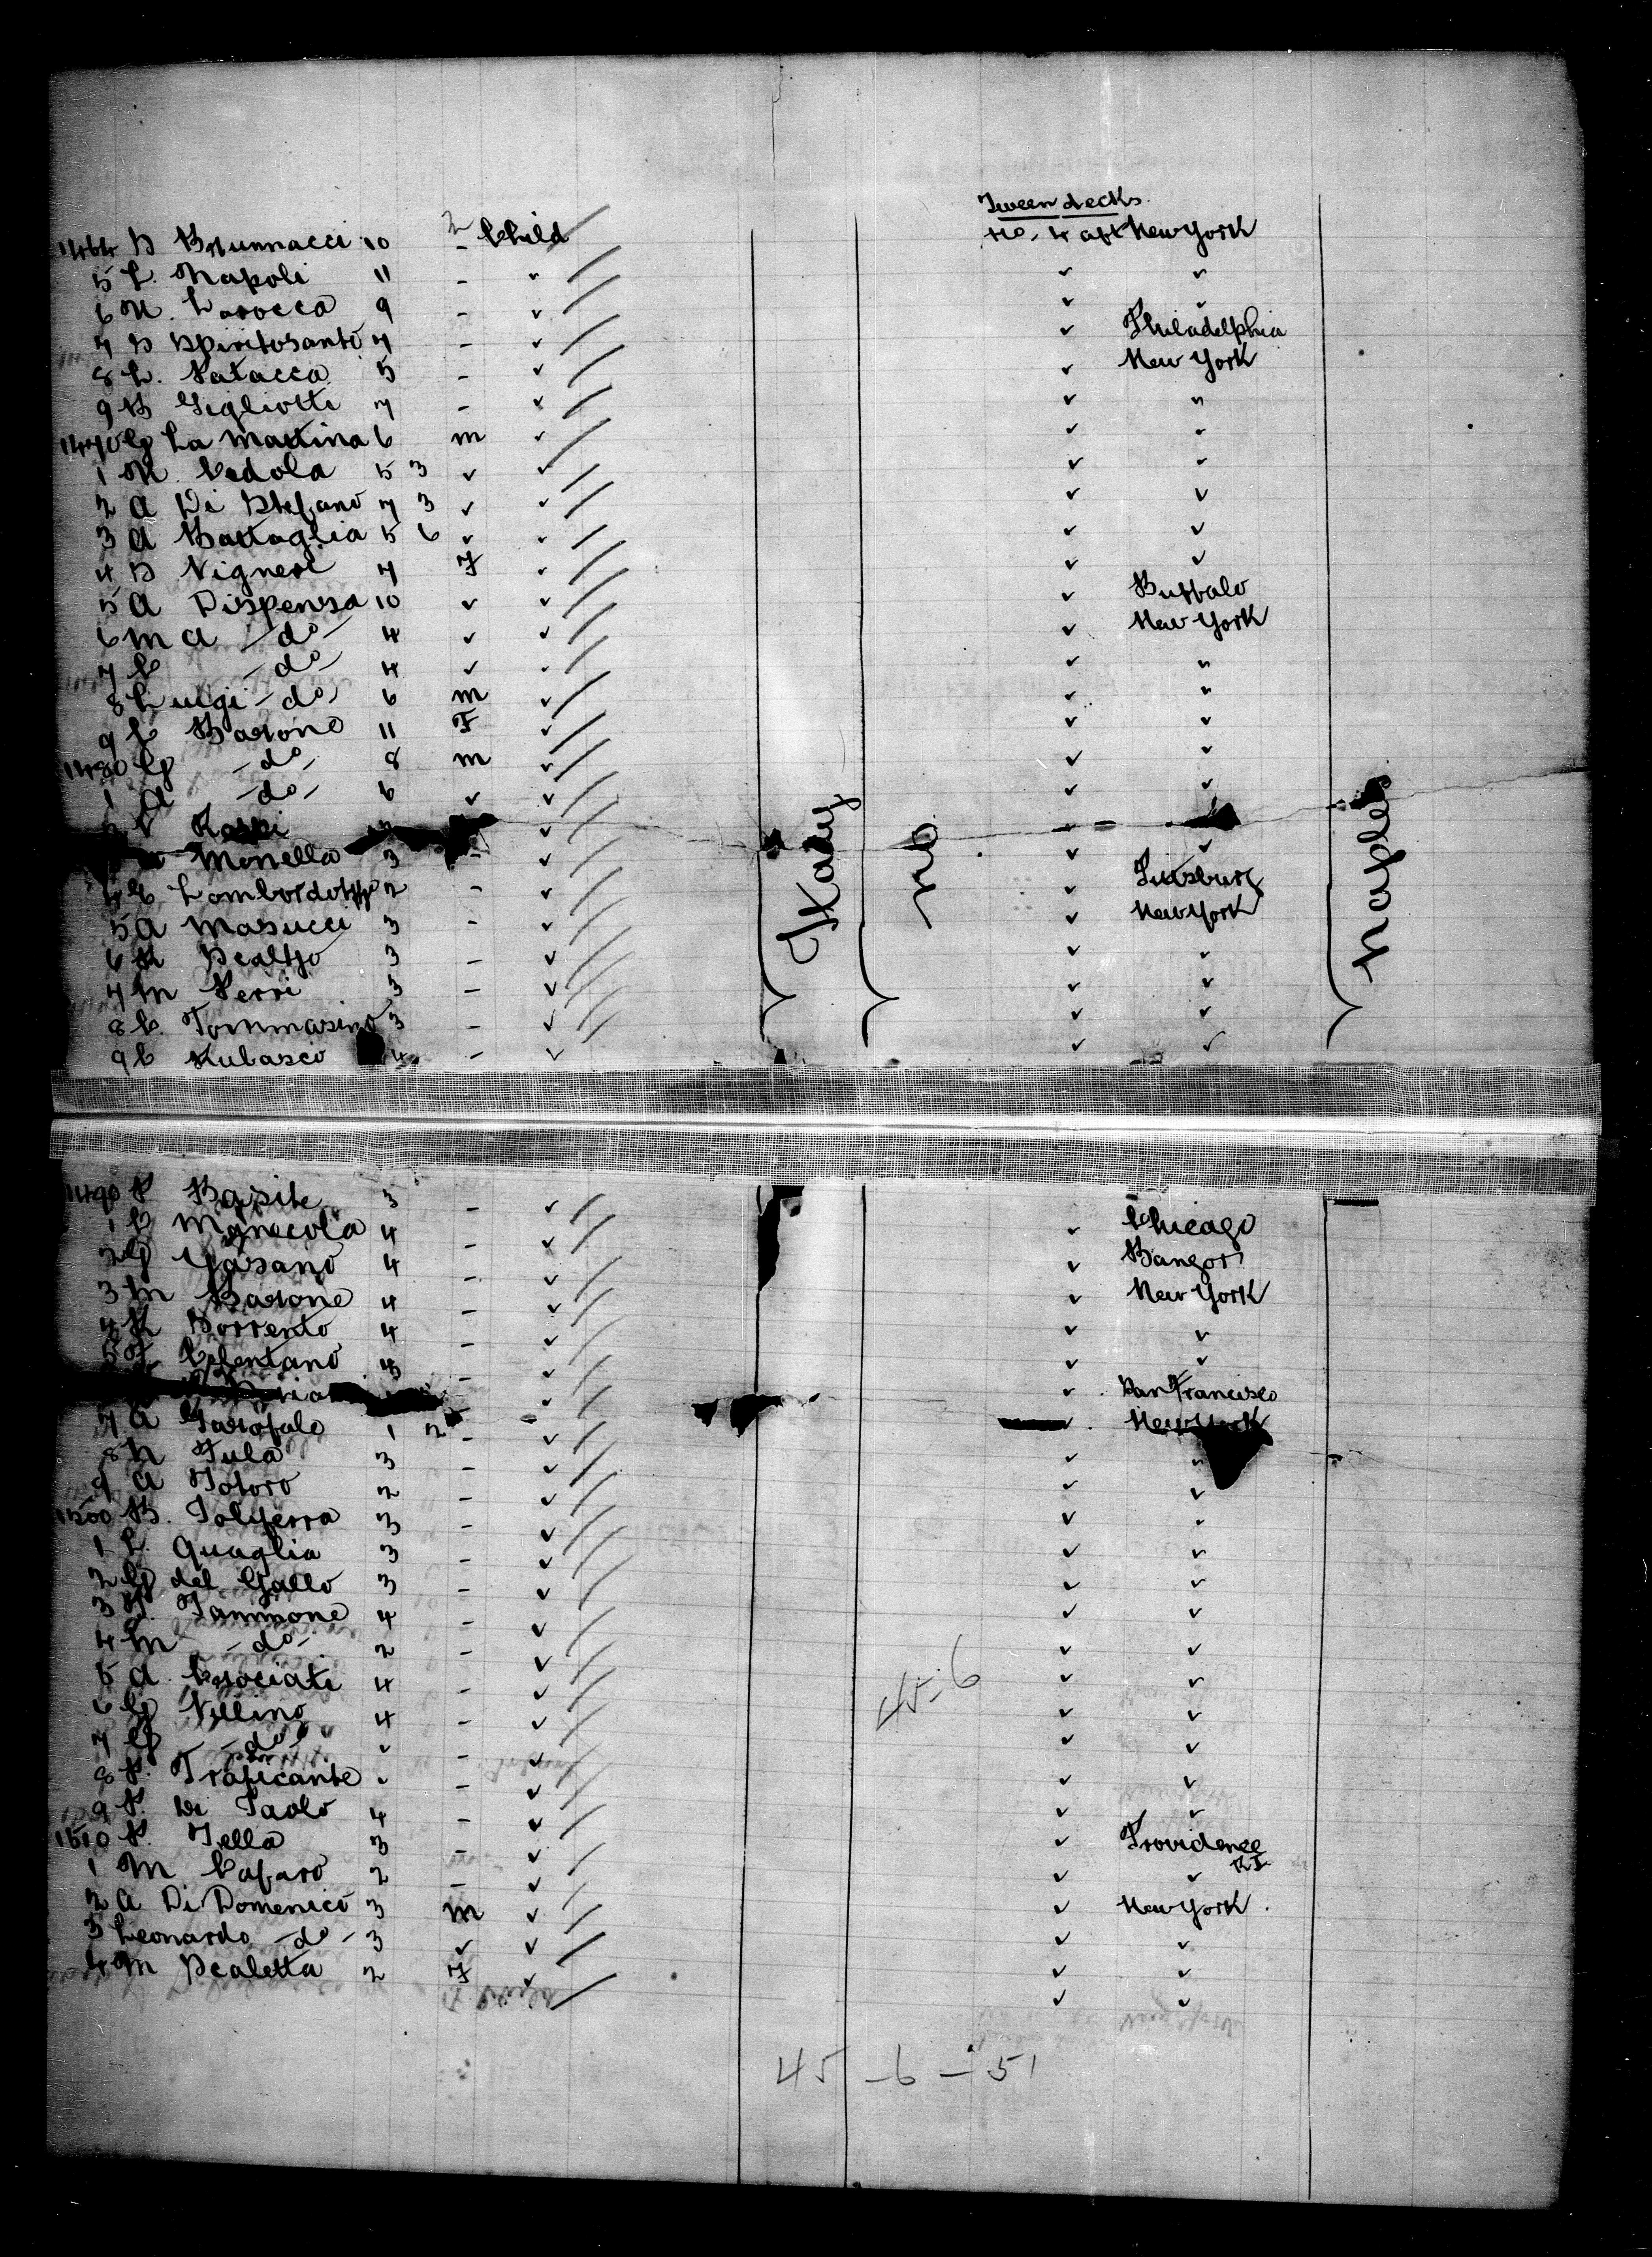 Tween decks
1464 S Brunnacci 10 - Child No. 4 aft New York
5 L. Napoli 11 - " ✓ "
6 N. Larocca 9 - ✓ ✓ ✓
7 S Spiritosanto 7 - ✓ ✓ Philadelphia
8 L. Patacca 5 - ✓ ✓ New York
9 B Gigliotti 7 - ✓ ✓ "
1470 G La Mattina 6 m ✓ ✓ "
1 N. Cedola 5 3 ✓ ✓ ✓ "
2 A Di Stefano 7 3 ✓ ✓ ✓ ✓
3 A Battaglia 5 6 ✓ ✓ ✓ ✓
4 S Vigneri 7 F ✓ ✓ ✓
5 A Dispensa 10 ✓ ✓ ✓ Buffalo
6 M A -do- 4 ✓ ✓ ✓ New York
7 C -do- 4 ✓ ✓ ✓ "
8 Luigi -do- 6 m ✓ ✓ "
9 C Barone 11 F ✓ ✓ ✓
1480 G -do- 8 m ✓ ✓ ✓
1 A -do- 6 ✓ ✓ ✓ ✓
Italy
no
Naples
Monella 3 - ✓ ✓ ✓
4 C Lombardozzi 2 - ✓ ✓ Pittsburg
5 A Masucci 3 - ✓ ✓ New York
6 R Scalzo 3 - ✓ ✓ ✓
7 M Perri 3 - ✓ ✓ ✓
8 C. Tommasino 3 - ✓ ✓ ✓
9 C Rubasco 4 - ✓ ✓ ✓
1490 P 3 - ✓
1 C Mignecola 4 - ✓ ✓ Chicago
2 G Gasano 4 - ✓ ✓ Bangor
3 M Barone 4 - ✓ ✓ New York
4 R Sorrento 4 - ✓ ✓ ✓
5 F Celentano 4 - ✓ ✓ ✓
✓ ✓ San Francisco
7 A Garofalo 1 2 - ✓ ✓ New York
8 N Tula 3 - ✓ ✓ "
9 A Totoro 2 - ✓ ✓ ✓
1500 B. Poliferra 3 - ✓ ✓ "
1 L. Quaglia 3 - ✓ ✓ "
2 G del Gallo 3 - ✓ ✓ ✓
3 Iammone 4 - ✓ ✓ ✓
4 M -do- 2 - ✓ ✓ ✓
5 A. Crociati 4 - ✓ ✓ ✓
6 G Vellino 4 - ✓ ✓ ✓
7 G -do- ✓ - ✓ ✓ ✓
8 P. Traficante ✓ - ✓ ✓ ✓
9 P. Di Paolo 4 - ✓ ✓ ✓
1510 P. Tella 3 - ✓ ✓ Providence RI
1 M Cafaro 2 - ✓ ✓ ✓
2 A Di Domenico 3 m ✓ ✓ New York
3 Leonardo -do- 3 ✓ ✓ ✓ ✓
4 M Scaletta 2 F ✓ ✓ ✓
45-6
45-6-51